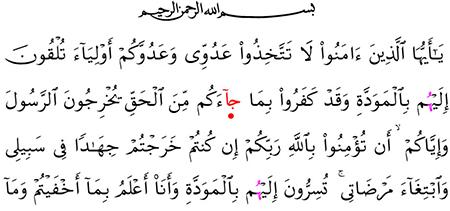 بسم الله الرحمن الرحيم
يَـٰٓأَيُّهَا ٱلَّذِينَ ءَامَنُوا۟ لَا تَتَّخِذُوا۟ عَدُوِّى وَعَدُوَّكُمْ أَوْلِيَآءَ تُلْقُونَ
إِلَيْهُم بِٱلْمَوَدَّةِ وَقَدْ كَفَرُوا۟ بِمَا جآءَكُم مِّنَ ٱلْحَقِّ يُخْرِجُونَ ٱلرَّسُولَ
وَإِيَّاكُمْ ۙ أَن تُؤْمِنُوا۟ بِٱللَّهِ رَبِّكُمْ إِن كُنتُمْ خَرَجْتُمْ جِهَـٰدًا فِى سَبِيلِى
وَٱبْتِغَآءَ مَرْضَاتِى ۚ تُسِرُّونَ إِلَيْهُم بِٱلْمَوَدَّةِ وَأَنَا۠ أَعْلَمُ بِمَآ أَخْفَيْتُمْ وَمَآ